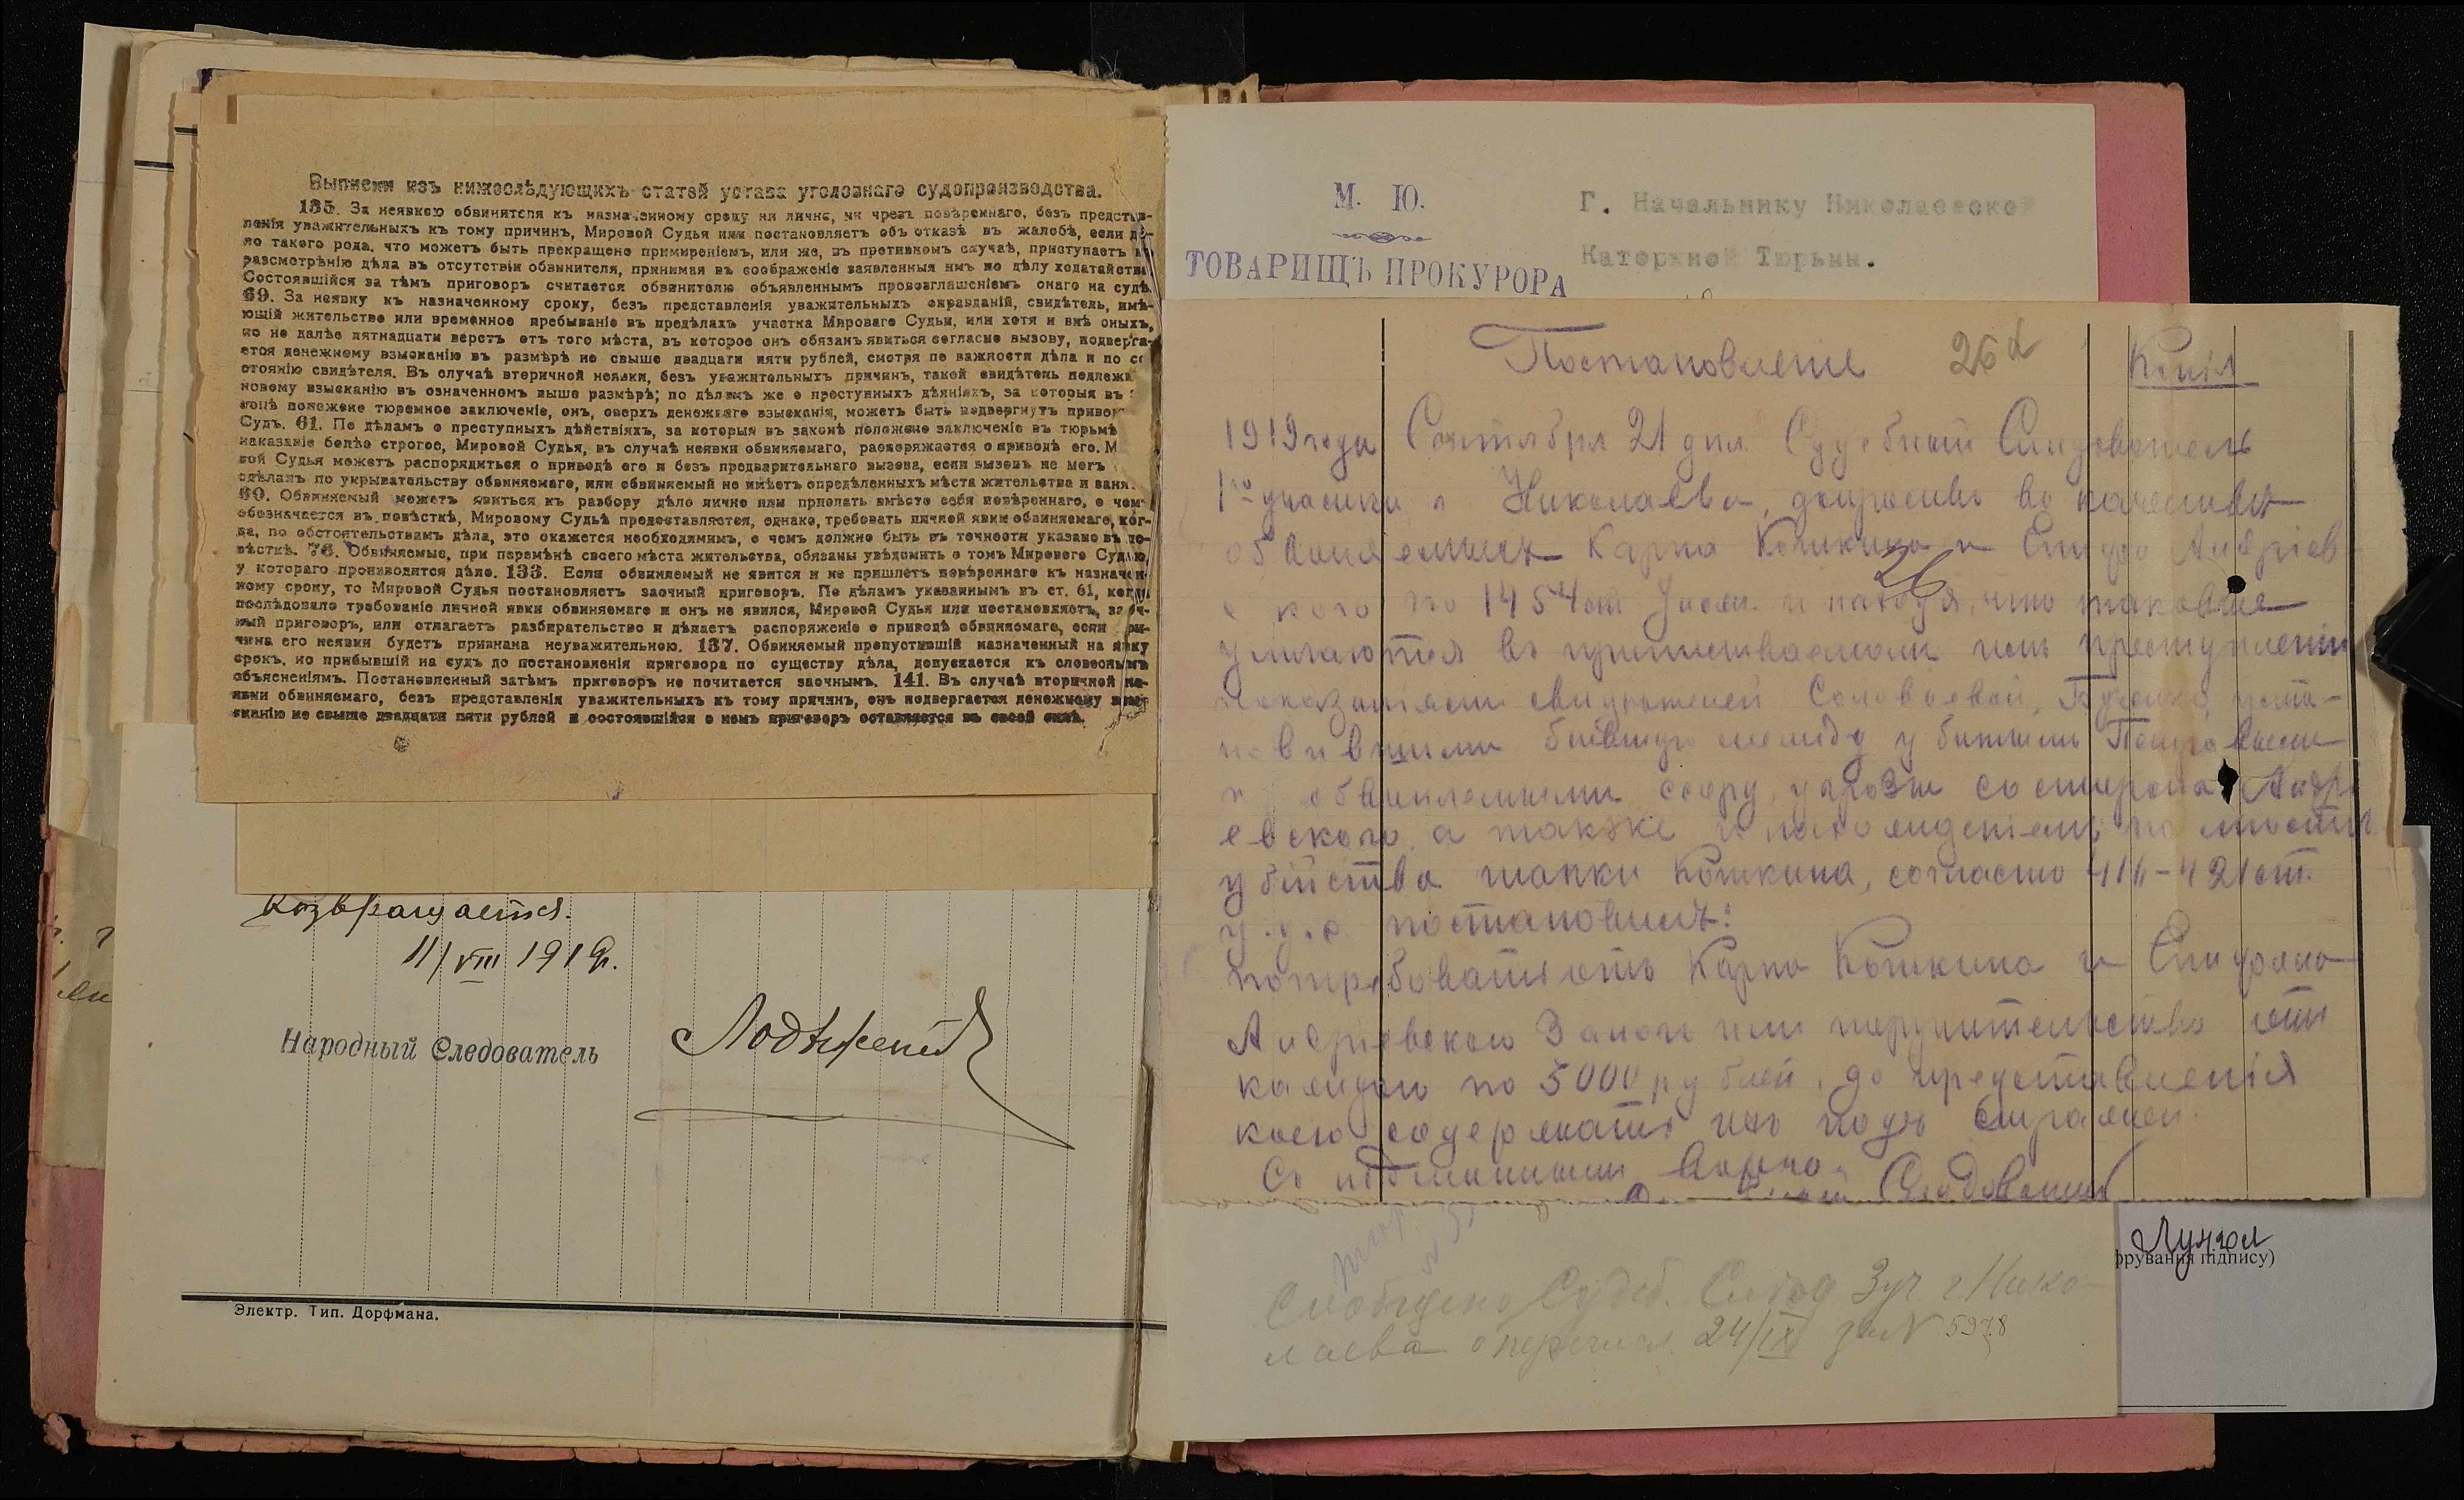 Выписки изъ нижеслѣдующихъ статей устава уголовнаго судопроизводства.
135. За неявкою обвинителя къ назначенному сроку ни лично, ни чрезъ повѣреннаго, безъ представ-
ленія уважительныхъ къ тому причинъ, Мировой Судья или постановляетъ объ отказѣ въ жалобѣ, если дѣ-
ло такого рода, что можетъ быть прекращено примиреніемъ, или же, въ противномъ случаѣ, приступаетъ къ
разсмотрѣнію дѣла въ отсутствіи обвинителя, принимая въ соображеніе заявленныя имъ по дѣлу ходатайства
Состоявшійся за тѣмъ приговоръ считается обвинителю объявленнымъ провозглашеніемъ онаго на судѣ.
69. За неявку къ назначенному сроку, безъ представленія уважительныхъ оправданій, свидѣтель, имѣ-
ющій жительство или временное пребываніе въ предѣлахъ участка Мироваго Судьи, или хотя и внѣ оныхъ,
но не далѣе пятнадцати верстъ отъ того мѣста, въ которое онъ обязанъ явиться согласно вызову, подверга-
ется денежному взысканію въ размѣрѣ не свыше двадцати пяти рублей, смотря по важности дѣла и по со
стоянію свидѣтеля. Въ случаѣ вторичной неявки, безъ уважительныхъ причинъ, такой свидѣтель подлежи
новому взысканію въ означенномъ выше размѣрѣ; по дѣламъ же о преступныхъ дѣяніяхъ, за которыя въ з
конѣ положено тюремное заключеніе, онъ, сверхъ денежнаго взысканія, можетъ быть подвергнутъ привод
Судъ. 61. По дѣламъ о преступныхъ дѣйствіяхъ, за которыя въ законѣ положено заключеніе въ тюрьмѣ
наказаніе болѣе строгое, Мировой Судья, въ случаѣ неявки обвиняемаго, распоряжается о приводѣ его. М
вой Судья можетъ распорядиться о приводѣ его и безъ предварительнаго вызова, если вызовъ не могъ
сдѣланъ по укрывательству обвиняемаго, или обвиняемый не имѣетъ опредѣленныхъ мѣста жительства и заня.
60. Обвиняемый можетъ явиться къ разбору дѣло лично или прислать вмѣсто себя повѣреннаго, о чем
обозначается въ повѣсткѣ, Мировому Судьѣ предоставляется, однако, требовать личной явки обвиняемаго, ког-
да, по обстоятельствамъ дѣла, это окажется необходимымъ, о чемъ должно быть въ точности указано въ по-
вѣсткѣ. 76. Обвиняемые, при перемѣнѣ своего мѣста жительства, обязаны увѣдомить о томъ Мирового Судью,
у котораго производится дѣло. 133. Если обвиняемый не явится и не пришлетъ повѣреннаго къ назначен-
ному сроку, то Мировой Судья постановляетъ заочный приговоръ. По дѣламъ указаннымъ въ ст. 61, когда
послѣдовало требованіе личной явки обвиняемаго и онъ не явился, Мировой Судья или постановляетъ, заоч-
ный приговоръ, или отлагаетъ разбирательство и дѣлаетъ распоряженіе о приводѣ обвиняемаго, если при-
чина его неявки будетъ признана неуважительною. 137. Обвиняемый пропустившій назначенный на явку
срокъ, но прибывшій на судъ до постановленія приговора по существу дѣла, допускается къ словеснымъ
объясненіямъ. Постановленный затѣмъ приговоръ не почитается заочнымъ. 141. Въ случаѣ вторичной не-
явки обвиняемаго, безъ представленія уважительныхъ къ тому причинъ, онъ подвергается денежному взы-
сканію не свыше двадцати пяти рублей и состоявшійся о немъ приговоръ оставляется въ своей силѣ.
Возвращается.
11/VIII 1919.
Народный Следователь
Электр. Тип. Дорфмана.
М. Ю.
ТОВАРИЩЪ ПРОКУРОРА
Г. Начальнику Николаевской
Каторжной Тюрьмы.
Постановленіе 26 Копія
1919 года Сентября 21 дня Судебный Слѣдователь
1го участка г Николаева, допросивъ въ качествѣ
обвиняемыхъ Карпа Кошкина и Андріев
ского по 1454 ст Улож. и находя, что таковые
уличаются въ приписываемомъ имъ преступленіи
показаніями свидѣтелей Соловьевой, уста-
новившими бывшую между убитымъ
и обвиняемыми ссору, угрозы со стороны Андрі
евского, а также и нахожденіемъ на мѣстѣ
убійства шапки Кошкина, согласно 416-421 ст.
у.у.с. постановилъ:
потребовать отъ Карпа Кошкина и Спиридона
Андріевского залогъ или поручительство отъ
каждого по 5000 рублей, до представленія
коего содержать ихъ подъ стражей.
Съ подлиннымъ вѣрно:
Слѣдователь
26
Сообщено Судеб. Слѣд 3 уч. г Нико
лаева о перечисл. 24/IX за N 5978
фрування підпису)